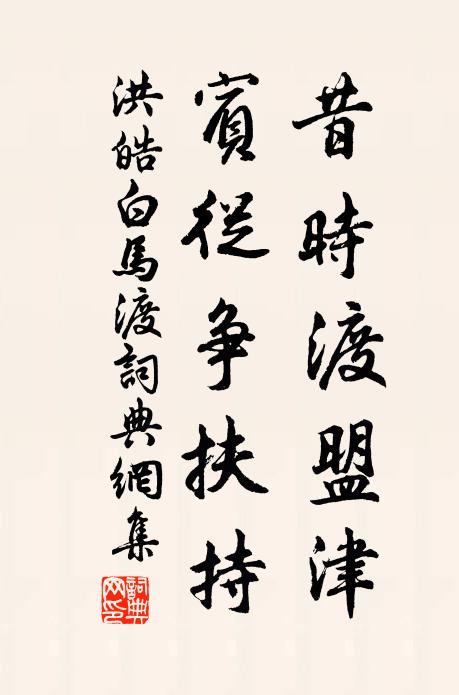 昔時渡盟津
賓從争扶持
洪皓白馬渡詞典網集
詞典網印